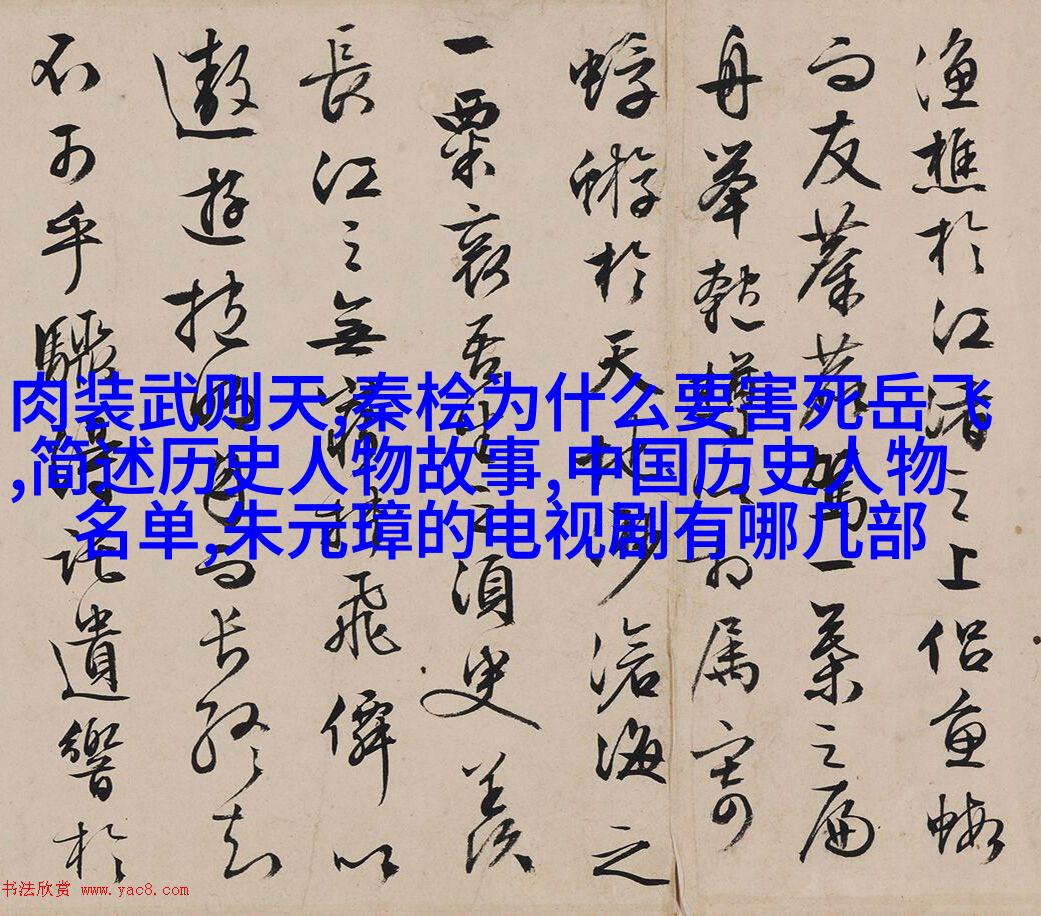 漁樵於江渚之上侶魚蝦
而友麋鹿駕一葉之扁
舟舉匏樽以相屬寄
蜉蝣於天地眇滄海之
一粟哀吾生之須臾羨
長江之無窮挾飛僊以
遨遊抱明月而長終知
不可乎驟得託遺響於
肉装武则天,秦桧为什么要害死岳飞
,简述历史人物故事,中国历史人物
名单,朱元璋的电视剧有哪几部
书法欣赏 www.yac8.com